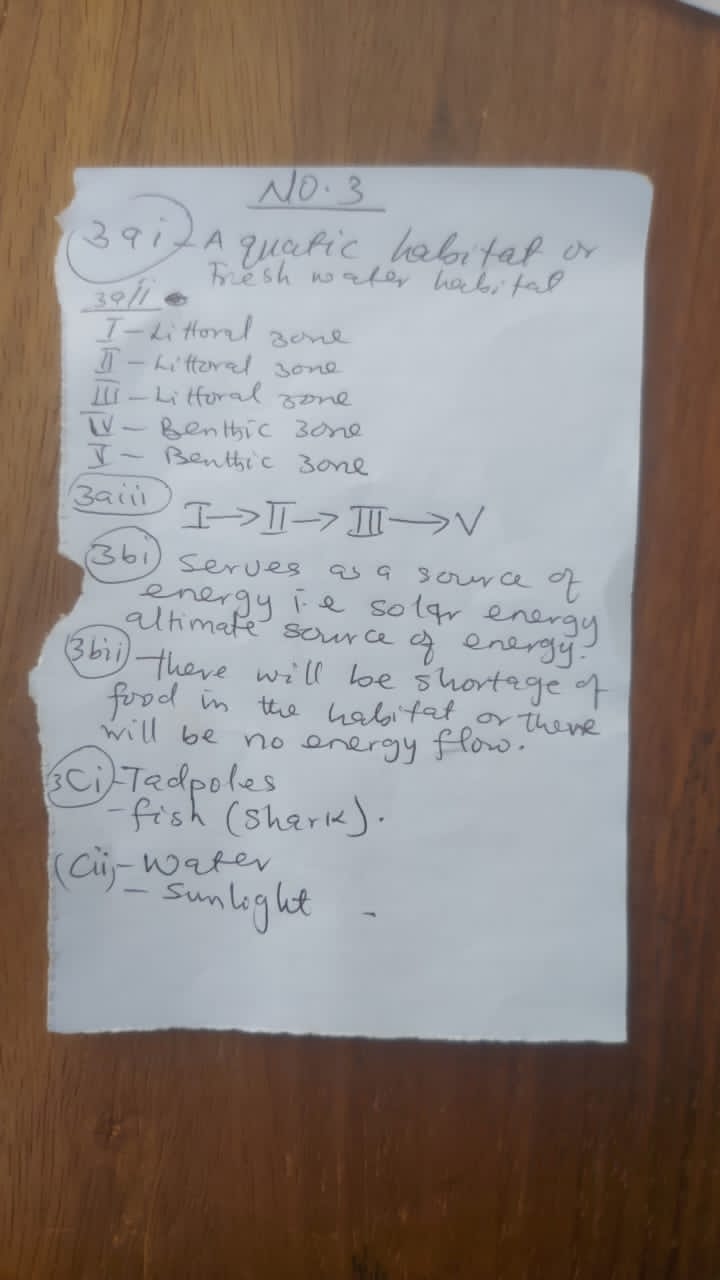 NO. 3
3ai - Aquatic habitat or
Fresh water habital
3aii
I - Littoral zone
II - Littoral zone
III - Littoral zone
IV - Benthic zone
V - Benthic zone
3aiii I → II → III → V
3bi serves as a source of
energy i.e solar energy
altimate source of energy.
3bii - there will be shortage of
food in the habitat or there
will be no energy flow.
3Ci - Tadpoles
- fish (shark).
(Cii) - Water
- Sunloght -